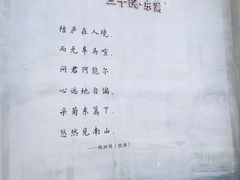 三十院·东篱
结庐在人境，
而无车马喧。
问君何能尔，
心远地自偏。
采菊东篱下，
悠然见南山。
——陶渊明《饮酒》